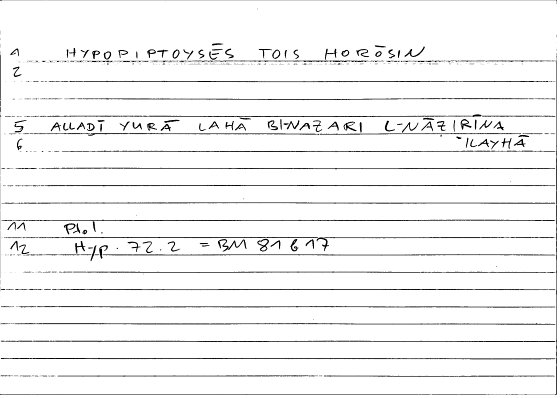 1 HYPOPIPTOYSĒS TOIS HORŌSIN
2
5 ALLADĪ YURĀ LAHĀ BI-NAẒARI L-NĀẒIRĪNA
6 ILAYHĀ
11 Ptol.
12 Hyp. 72.2 = BM 81617